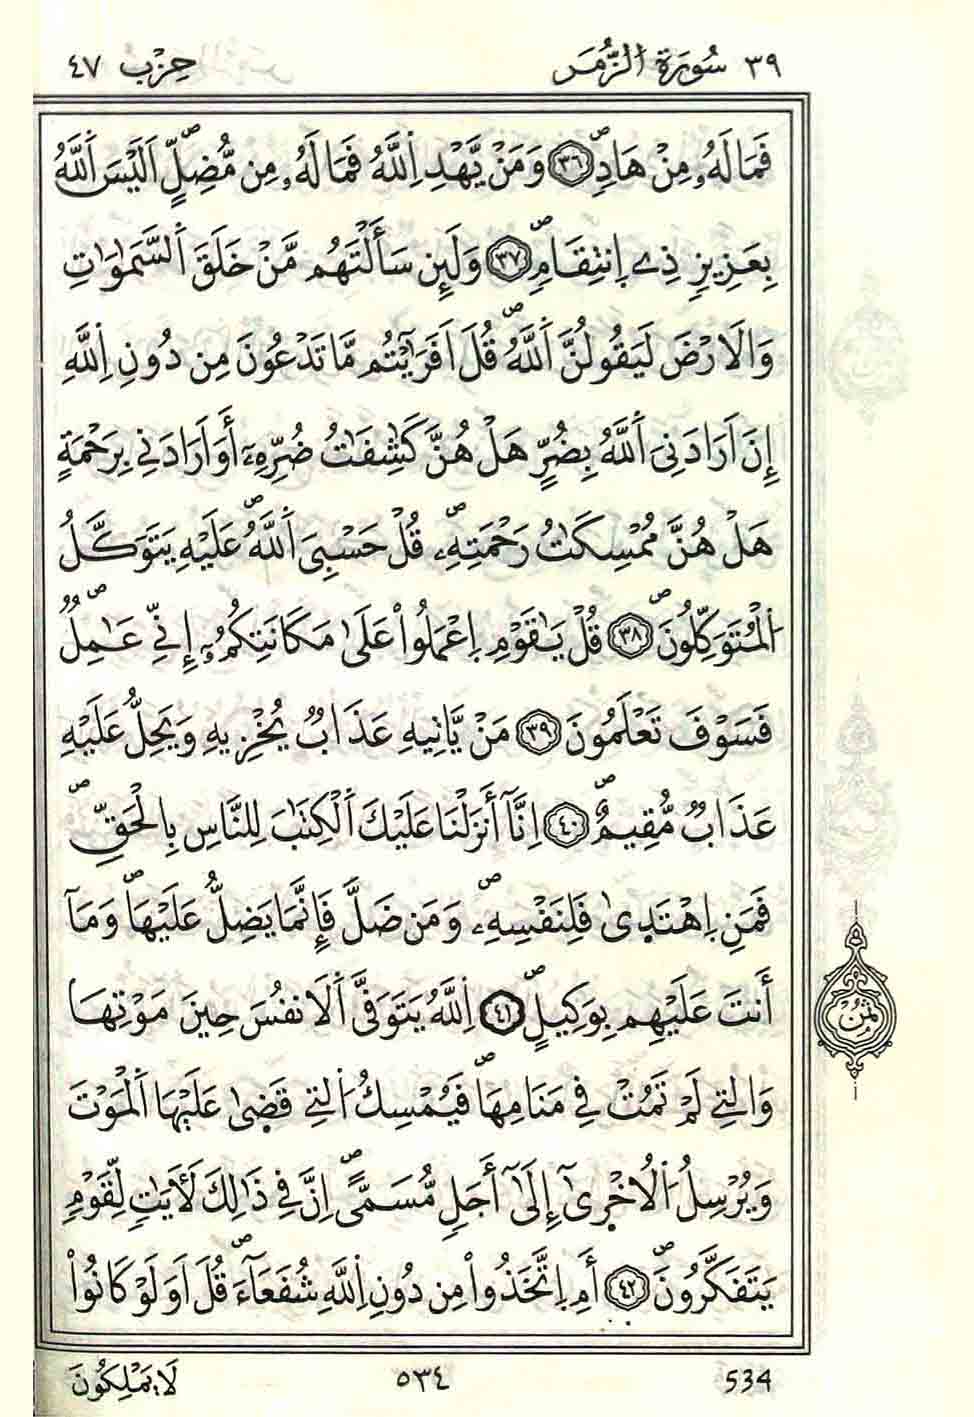 ٣٩ سُورَةُ الزُّمَر حِزْب ٤٧
فَمَا لَهُۥ مِنْ هَادٍۖ ٣٦ وَمَنْ يَّهْدِ اِ۬للَّهُ فَمَا لَهُۥ مِن مُّضِلٍّۖ اَلَيْسَ اَ۬للَّهُ
بِعَزِيزٍ ذِے اِ۪نتِقَامٍۖ ٣٧ وَلَئِن سَأَلْتَهُم مَّنْ خَلَقَ اَ۬لسَّمَٰوَٰتِ
وَالَارْضَ لَيَقُولُنَّ اَ۬للَّهُۖ قُلَ اَفَرَٰٓيْتُم مَّا تَدْعُونَ مِن دُونِ اِ۬للَّهِ
إِنَ اَرَادَنِيَ اَ۬للَّهُ بِضُرٍّ هَلْ هُنَّ كَٰشِفَٰتُ ضُرِّهِۦٓ أَوَ اَرَادَنِے بِرَحْمَةٍ
هَلْ هُنَّ مُمْسِكَٰتُ رَحْمَتِهِۦۖ قُلْ حَسْبِيَ اَ۬للَّهُۖ عَلَيْهِ يَتَوَكَّلُ
اُ۬لْمُتَوَكِّلُونَۖ ٣٨ قُلْ يَٰقَوْمِ اِ۪عْمَلُواْ عَلَىٰ مَكَانَتِكُمُۥٓ إِنِّے عَٰمِلٌۖ
فَسَوْفَ تَعْلَمُونَ ٣٩ مَنْ يَّاتِيهِ عَذَابٌ يُخْزِيهِ وَيَحِلُّ عَلَيْهِ
عَذَابٌ مُّقِيمٌۖ ٤٠ اِنَّآ أَنزَلْنَا عَلَيْكَ اَ۬لْكِتَٰبَ لِلنَّاسِ بِالْحَقِّۖ
فَمَنِ اِ۪هْتَد۪ىٰ فَلِنَفْسِهِۦۖ وَمَن ضَلَّ فَإِنَّمَا يَضِلُّ عَلَيْهَاۖ وَمَآ
أَنتَ عَلَيْهِم بِوَكِيلٍۖ ٤١ اِ۬للَّهُ يَتَوَفَّى اَ۬لَانفُسَ حِينَ مَوْتِهَا
وَالتِے لَمْ تَمُتْ فِے مَنَامِهَاۖ فَيُمْسِكُ اُ۬لتِے قَض۪ىٰ عَلَيْهَا اَ۬لْمَوْتَ
وَيُرْسِلُ اُ۬لُاخْر۪ىٰٓ إِلَىٰٓ أَجَلٍ مُّسَمّىًۖ اِنَّ فِے ذَٰلِكَ لَأٓيَٰتٍ لِّقَوْمٍ
يَتَفَكَّرُونَۖ ٤٢ أَمِ اِ۪تَّخَذُواْ مِن دُونِ اِ۬للَّهِ شُفَعَآءَۖ قُلَ اَوَلَوْ كَانُواْ
ثُمُن
534 ٥٣٤ لَا يَمْلِكُونَ